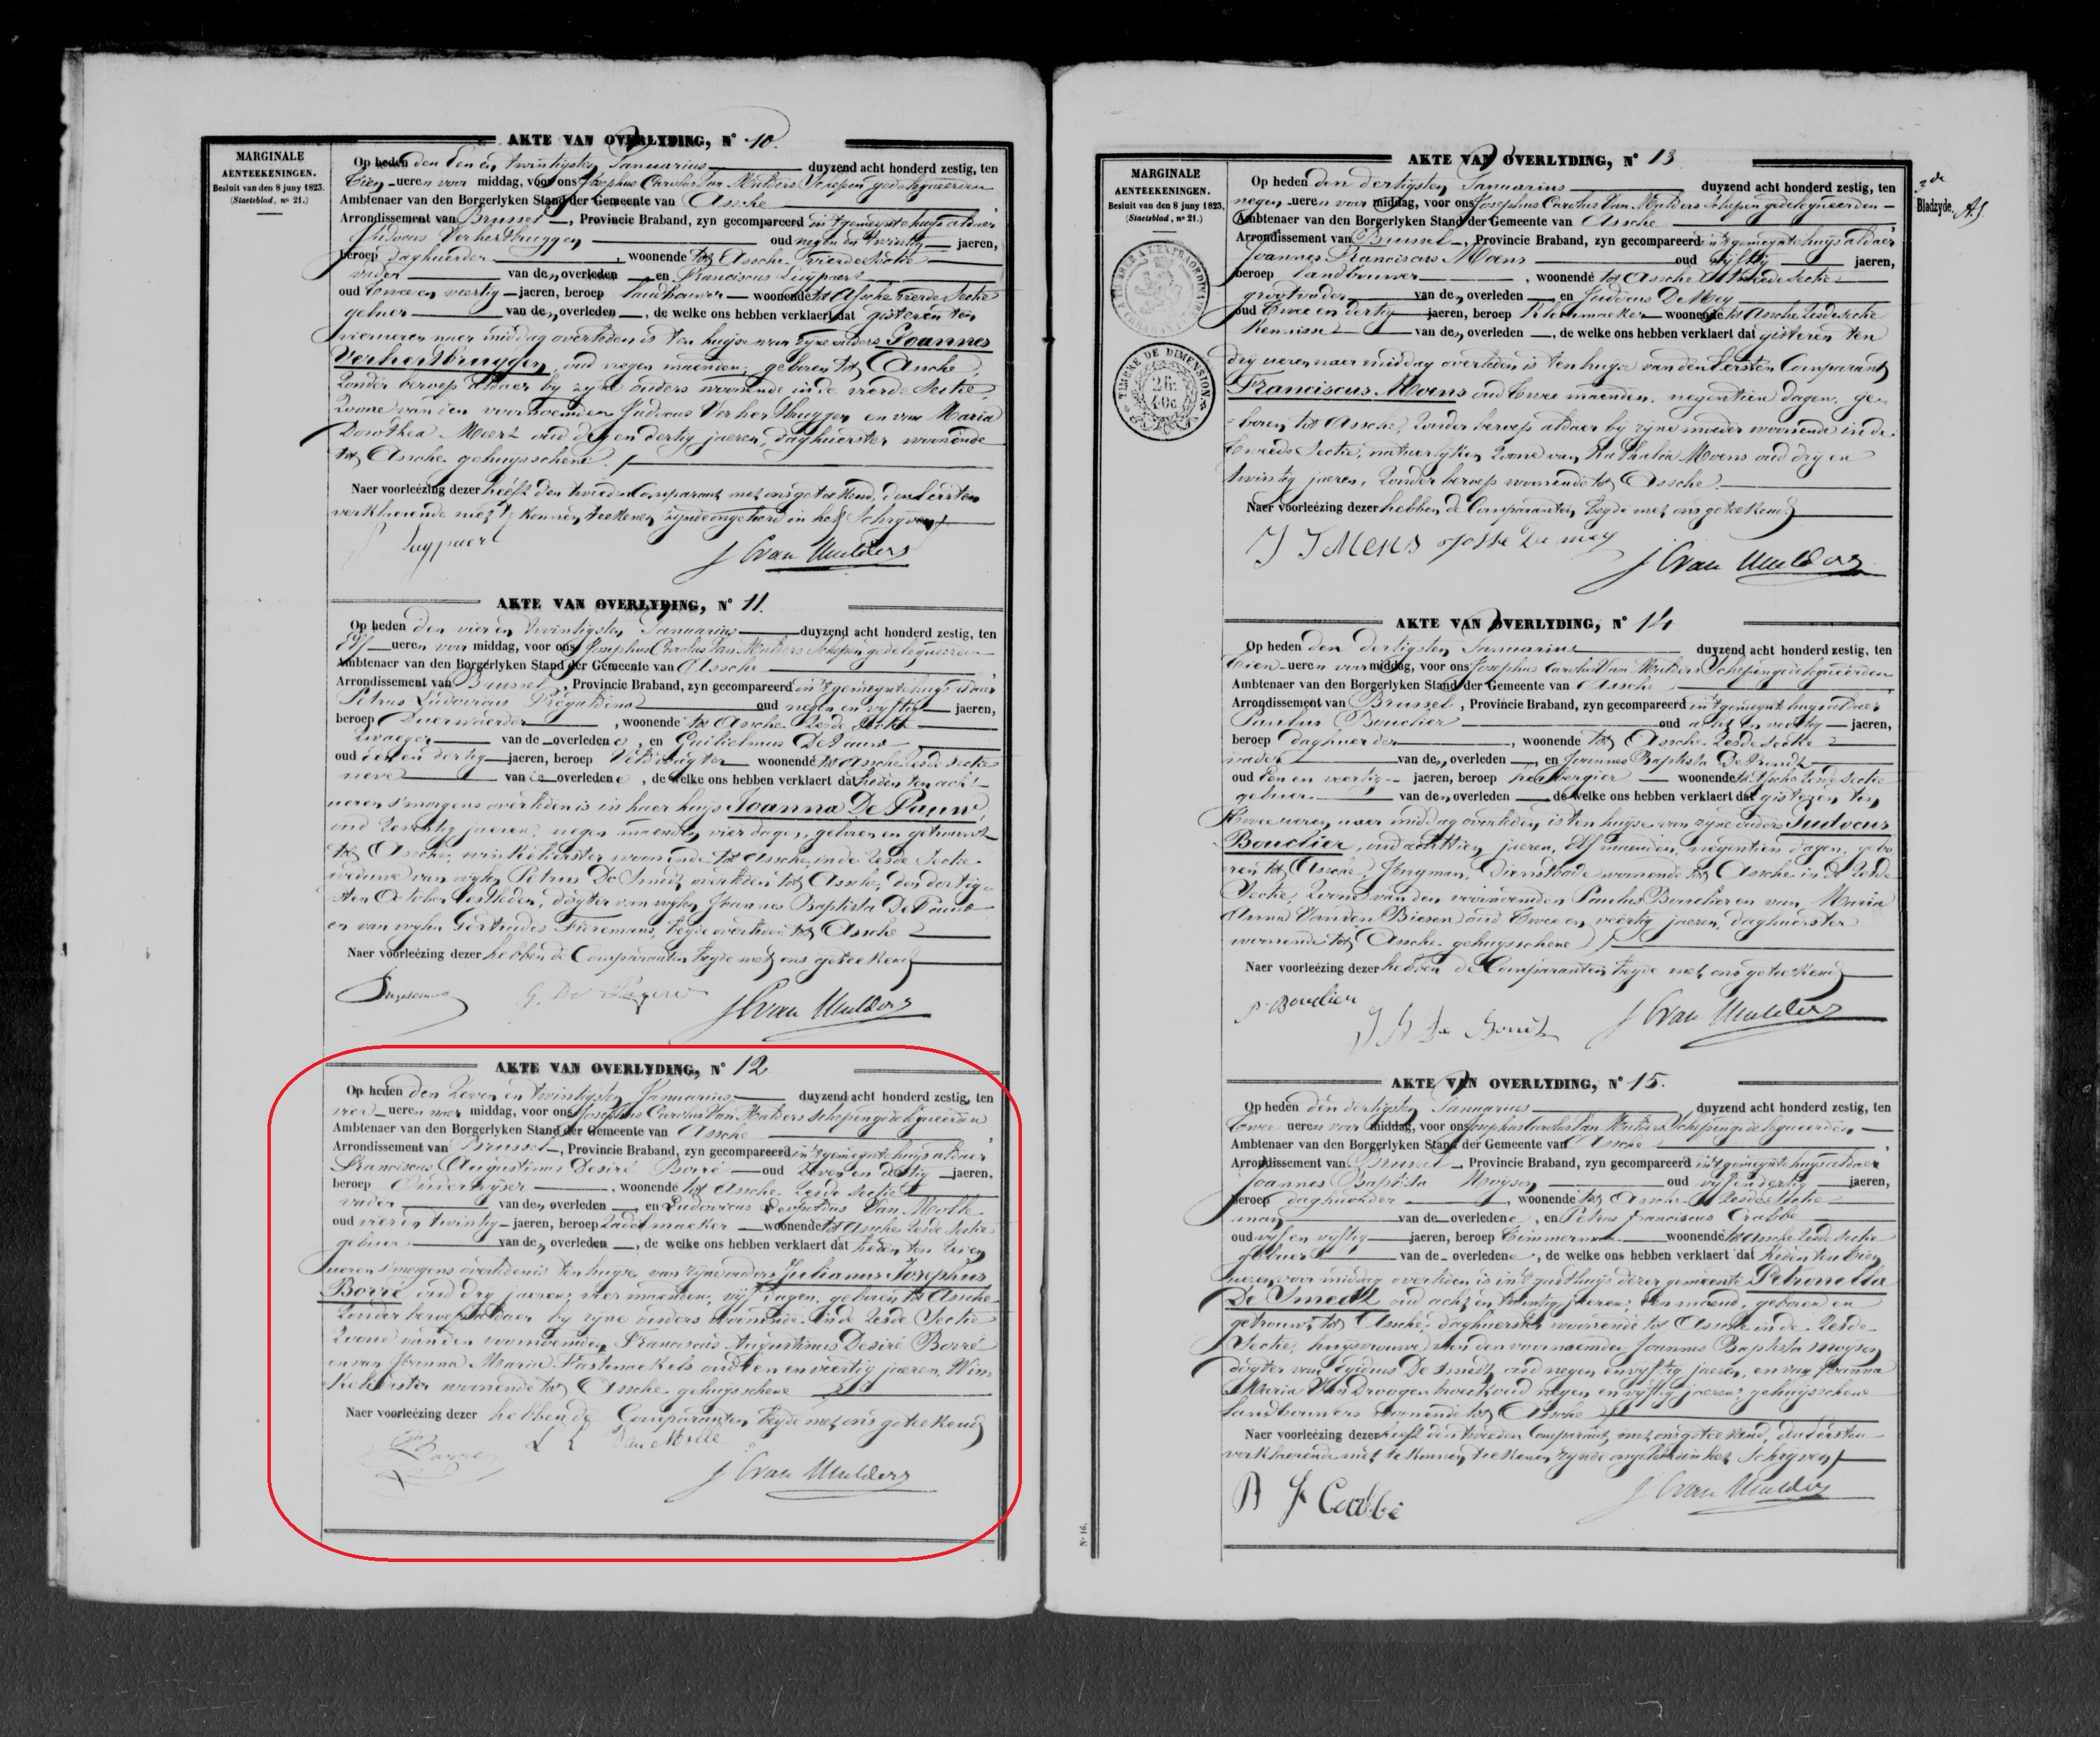 MARGINALE
AENTEEKENINGEN.
Besluit van den 8 juny 1823.
(Staetsblad, nº 21.)
AKTE VAN OVERLYDING, Nº 10.
Op heden den Een en twintigsten Januarius duyzend acht honderd zestig, ten
tien ueren voor middag, voor ons Josephus Carolus Van Mulders Schepen gedelegueerden
Ambtenaer van den Borgerlyken Stand der Gemeente van Assche,
Arrondissement van Brussel, Provincie Braband, zyn gecompareerd in 't gemeynte huys aldaer
Judocus Verhertbruggen oud negen en twintig jaeren,
beroep daghuerder, woonende tot Assche vierde Sectie
vader van den overleden en Franciscus Luypaert
oud twee en veertig jaeren, beroep landbouwer woonende tot Assche vierde Sectie
gebuer van den overleden, de welke ons hebben verklaert dat gisteren ten
vier ueren naer middag overleden is ten huyse van zyne ouders Joannes
Verhertbruggen, oud negen maenden, geboren tot Assche,
zonder beroep aldaer by zyne ouders woonende in de vierde Sectie,
Zoone van den voornoemden Judocus Verhertbruggen en van Maria
Dorothea Meert oud dry en dertig jaeren, daghuerster woonende
tot Assche gehuysschene.
Naer voorleézing dezer heeft den tweeden Comparant met ons geteekend, den Eersten
verklaerende niet te konnen teekenen zynde ongeleerd in het Schryven
Luypaert
J C van Mulders
AKTE VAN OVERLYDING, Nº 11.
Op heden den vier en twintigsten Januarius duyzend acht honderd zestig, ten
Elf ueren voor middag, voor ons Josephus Carolus Van Mulders Schepen gedelegueerden
Ambtenaer van den Borgerlyken Stand der Gemeente van Assche,
Arrondissement van Brussel, Provincie Braband, zyn gecompareerd in 't gemeynte huys aldaer
Petrus Ludovicus oud negen en vyftig jaeren,
beroep Duerwaerder, woonende tot Assche Zesde Sectie
Zwaeger van de overledene, en Guilielmus De Pauw
oud een en dertig jaeren, beroep woonende tot Assche Zesde Sectie
neve van de overledene, de welke ons hebben verklaert dat heden ten acht
ueren s'morgens overleden is in haer huys Joanna De Pauw,
oud Zeventig jaeren, negen maenden, vier dagen, geboren en getrouwt
tot Assche, winkelierster woonende tot Assche in de Zesde Sectie
weduwe van wylen Petrus De Smedt overleden tot Assche, den dertig-
sten October lestleden, dogter van wylen Joannes Baptista De Pauw
en van wylen Gertrudes Fieremans, beyde overleden tot Assche
Naer voorleézing dezer hebben de Comparanten beyde met ons geteekend
G. De Pauw
J C van Mulders
AKTE VAN OVERLYDING, Nº 12
Op heden den Zeven en twintigsten Januarius duyzend acht honderd zestig, ten
vier ueren naer middag, voor ons Josephus Carolus Van Mulders Schepen gedelegueerden
Ambtenaer van den Borgerlyken Stand der Gemeente van Assche,
Arrondissement van Brussel, Provincie Braband, zyn gecompareerd in 't gemeynte huys aldaer
Franciscus Augustinus Desiré Borré oud Zeven en dertig jaeren,
beroep Onderwyser, woonende tot Assche Zesde Sectie
vader van den overleden en Ludovicus Leopoldus Van Molle
oud vier en twintig jaeren, beroep Zadelmaeker woonende tot Assche Zesde Sectie
gebuer van den overleden, de welke ons hebben verklaert dat heden ten Zeven
ueren s'morgens overleden is ten huyse van zyne ouders Julianus Josephus
Borré oud dry jaeren, vier maenden, vyf dagen, geboren tot Assche
Zonder beroep aldaer by zyne ouders woonende in de Zesde Sectie
Zoone van den voornoemden Franciscus Augustinus Desiré Borré
en van Joanna Maria Pastenaekels oud Een en veertig jaeren, Win-
kelierster woonende tot Assche gehuysschene
Naer voorleézing dezer hebben de Comparanten beyde met ons geteekend
Borré L L Van Molle
J C van Mulders
MARGINALE
AENTEEKENINGEN.
Besluit van den 8 juny 1823.
(Staetsblad, nº 21.)
TIMBRE DE DIMENSION
26.
40c
AKTE VAN OVERLYDING, Nº 13
3de
Bladzyde,
Op heden den dertigsten Januarius duyzend acht honderd zestig, ten
negen ueren voor middag, voor ons Josephus Carolus Van Mulders Schepen gedelegueerden
Ambtenaer van den Borgerlyken Stand der Gemeente van Assche,
Arrondissement van Brussel, Provincie Braband, zyn gecompareerd in 't gemeynte huys aldaer
Joannes Franciscus Moens oud vyftig jaeren,
beroep landbouwer, woonende tot Assche tweede Sectie
grootvader van den overleden en Judocus De Mey
oud twee en dertig jaeren, beroep woonende tot Assche Zesde Sectie
kennisse van den overleden, de welke ons hebben verklaert dat gisteren ten
dry ueren naer middag overleden is ten huyse van den Eersten Comparant
Franciscus Moens oud twee maenden, negentien dagen, ge-
boren tot Assche, Zonder beroep aldaer by zyne moeder woonende in de
tweede Sectie, natuerlyken Zoone van Nathalia Moens oud dry en
twintig jaeren, Zonder beroep woonende tot Assche.
Naer voorleézing dezer hebben de Comparanten beyde met ons geteekend
J F Mens Josse De mey
J C van Mulders
AKTE VAN OVERLYDING, Nº 14
Op heden den dertigsten Januarius duyzend acht honderd zestig, ten
tien ueren voor middag, voor ons Josephus Carolus Van Mulders Schepen gedelegueerden
Ambtenaer van den Borgerlyken Stand der Gemeente van Assche,
Arrondissement van Brussel, Provincie Braband, zyn gecompareerd in 't gemeynte huys aldaer
Paulus Bouclier oud acht en veertig jaeren,
beroep daghuerder, woonende tot Assche Zesde Sectie
vader van den overleden en Joannes Baptista
oud Een en veertig jaeren, beroep herbergier woonende tot Assche Zesde Sectie
gebuer van den overleden de welke ons hebben verklaert dat gisteren ten
twee ueren naer middag overleden is ten huyse van zyne ouders Judocus
Bouclier, oud achttien jaeren, Elf maenden, negentien dagen, gebo
ren tot Assche, Jongman, Dienstbode woonende tot Assche in de Zesde
Sectie, Zoone van den voornoemden Paulus Bouclier en van Maria
Anna Vanden Biesen oud twee en veertig jaeren, daghuerster
woonende tot Assche gehuysschene
Naer voorleézing dezer hebben de Comparanten beyde met ons geteekend
P. Bouclier
J C van Mulders
AKTE VAN OVERLYDING, Nº 15.
Op heden den dertigsten Januarius duyzend acht honderd zestig, ten
twee ueren naer middag, voor ons Josephus Carolus Van Mulders Schepen gedelegueerden
Ambtenaer van den Borgerlyken Stand der Gemeente van Assche,
Arrondissement van Brussel, Provincie Braband, zyn gecompareerd in 't gemeynte huys aldaer
Joannes Baptista Moysen oud vyf en dertig jaeren,
beroep daghuerder, woonende tot Assche Zesde Sectie
man van de overledene, en Petrus Franciscus Crabbe
oud vyf en vyftig jaeren, beroep timmerman woonende tot Assche Zesde Sectie
gebuer van de overledene, de welke ons hebben verklaert dat heden ten tien
ueren voor middag overleden is in 't gasthuys dezer gemeente Petronella
De Smedt oud acht en twintig jaeren, Een maend, geboren en
getrouwt tot Assche, daghuerster woonende tot Assche in de Zesde
Sectie, huysvrouwe van den voornoemden Joannes Baptista Moysen
dogter van Egidius De Smedt oud negen en vyftig jaeren, en van Joanna
Maria Van Droogenbroeck oud negen en vyftig jaeren, gehuysschene
landbouwers woonende tot Assche
Naer voorleézing dezer heeft den tweeden Comparant met ons geteekend, den Eersten
verklaerende niet te konnen teekenen zynde ongeleerd in het Schryven
P F Crabbé
J C van Mulders
Nº 16.